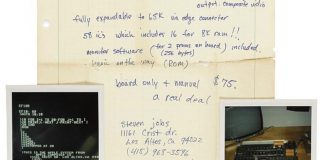 output: composite video
fully expandable to 65K via edge connector
58 IC's which includes 16 for 8K ram!!
monitor software (for 2 proms on board) included
(256 byte)
basic on the way (ROM)
board only + manual $75,
a real deal
steven jobs
11161 Crist dr.
Los Altos, Ca 94022
(415) 968-3596